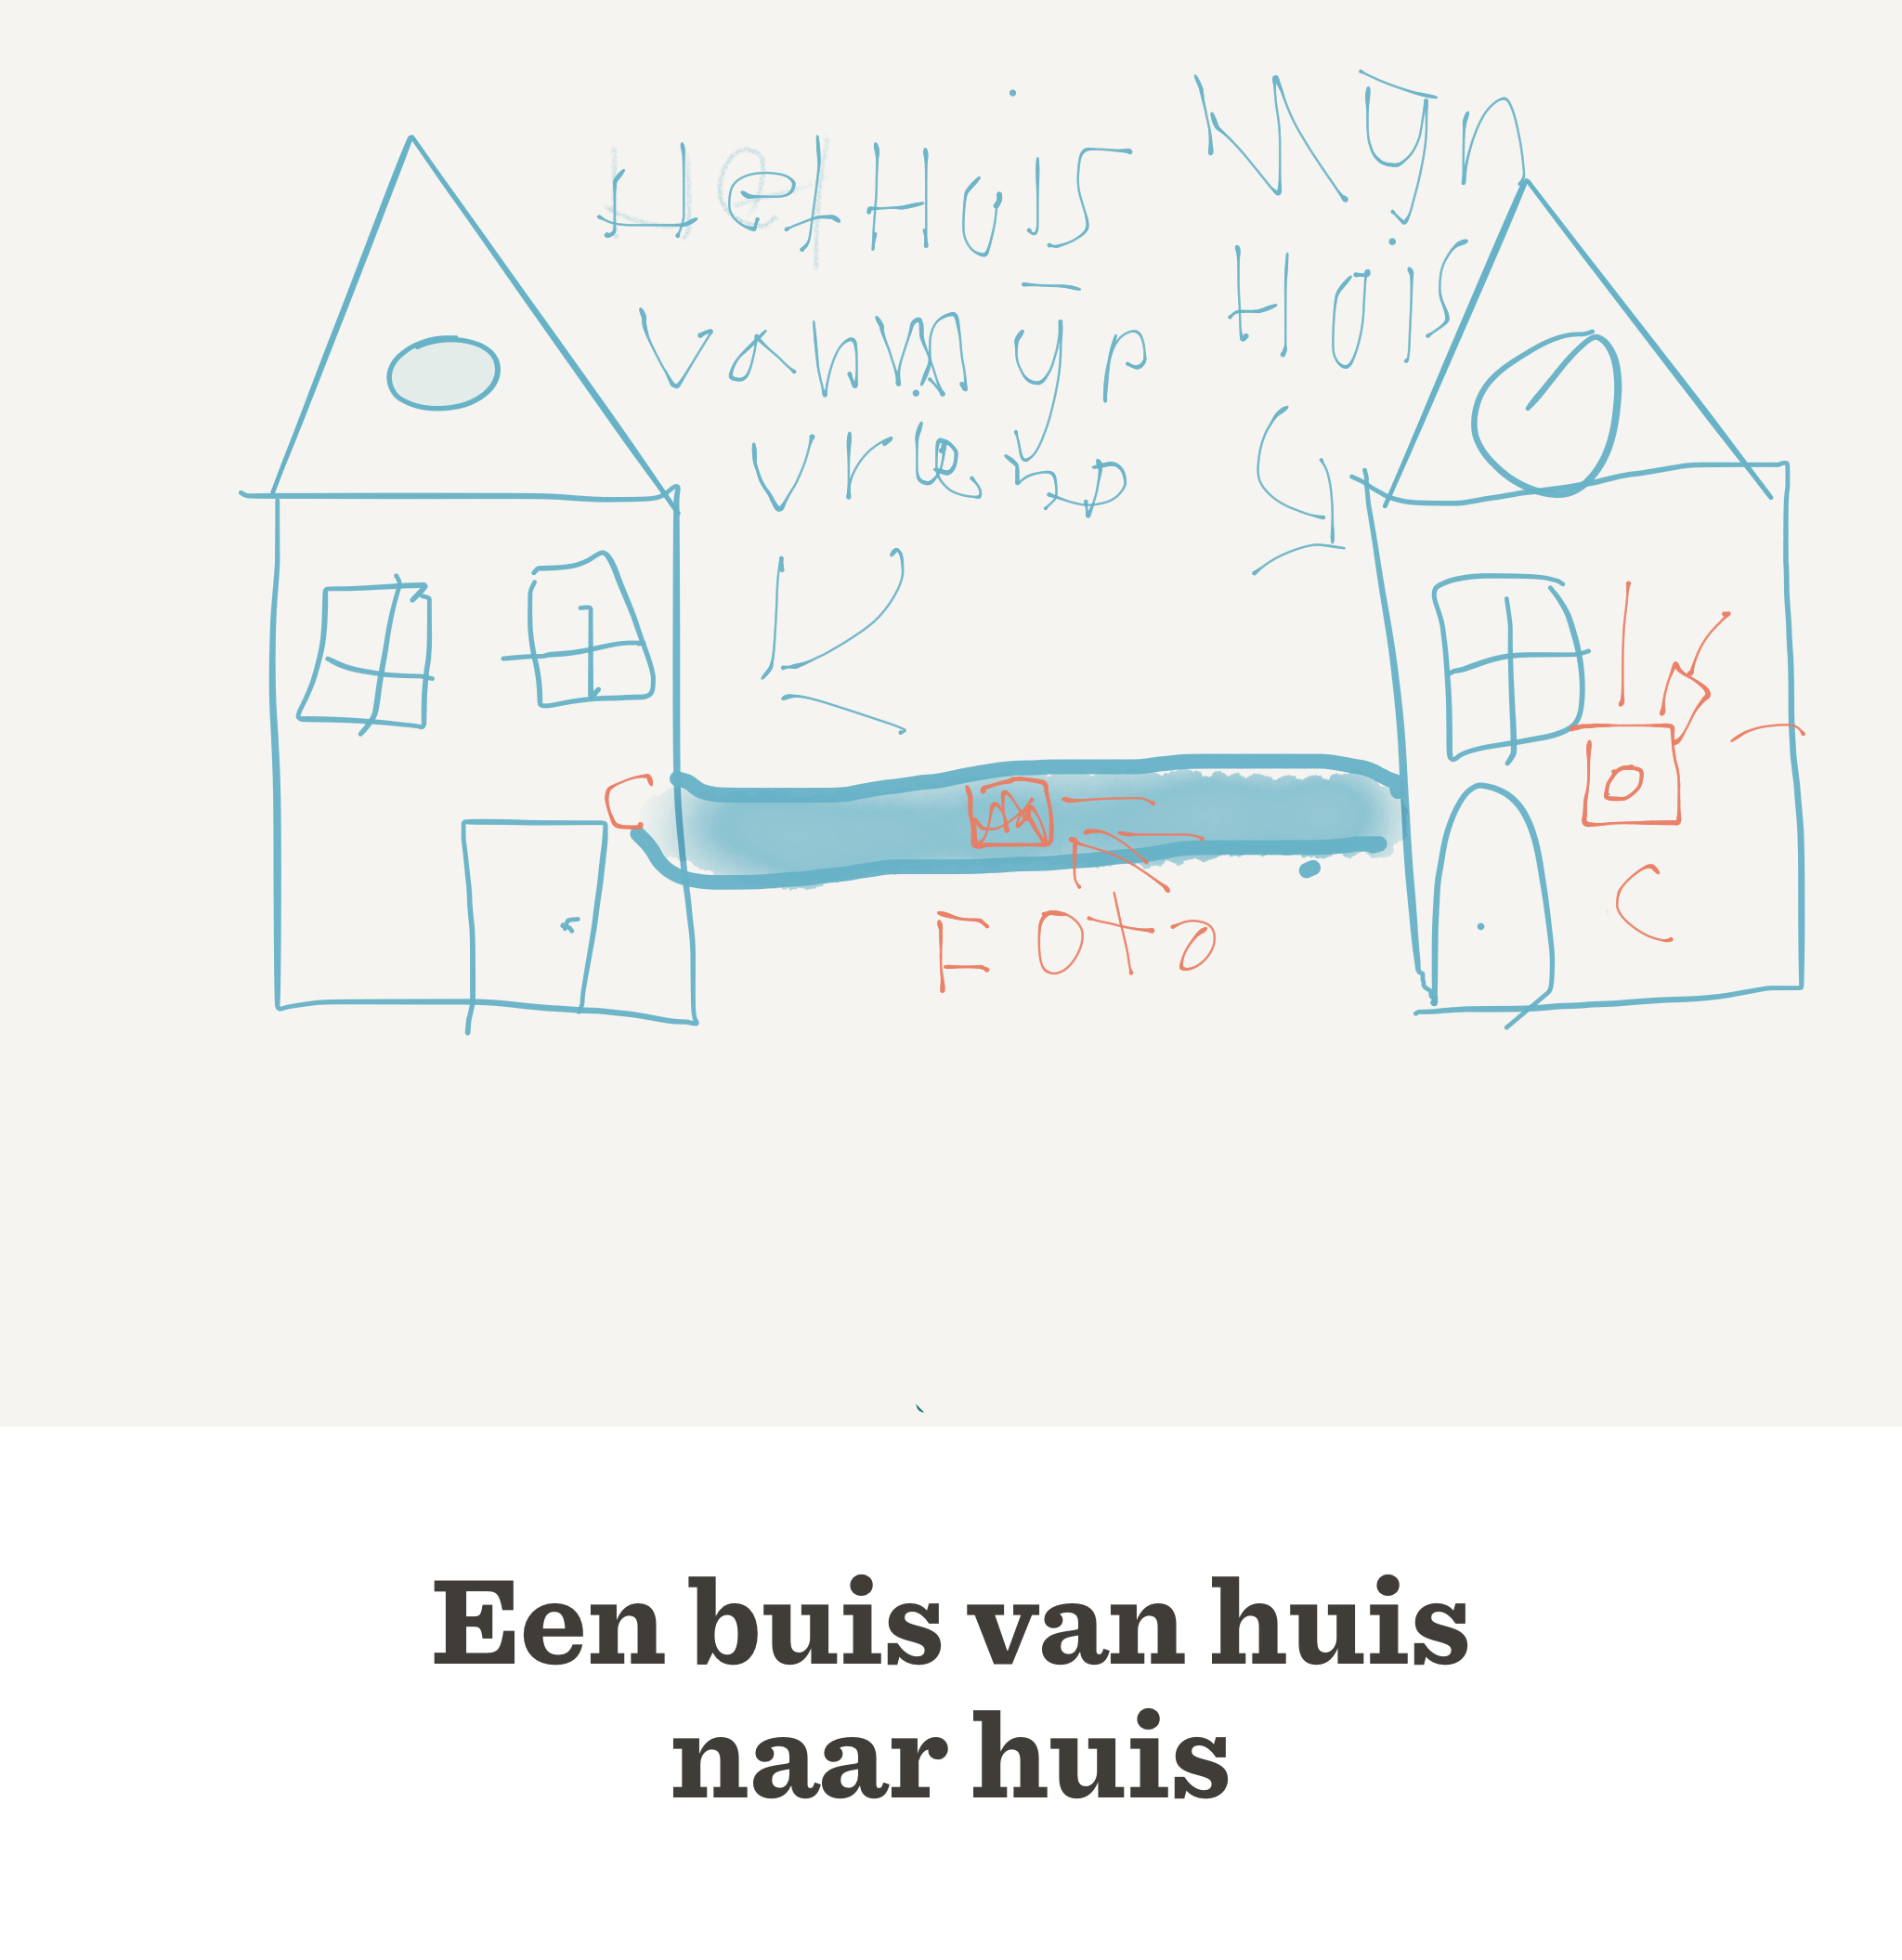 Het Huis
van myn
vrend
Myn
Huis
Foto
Een buis van huis
naar huis